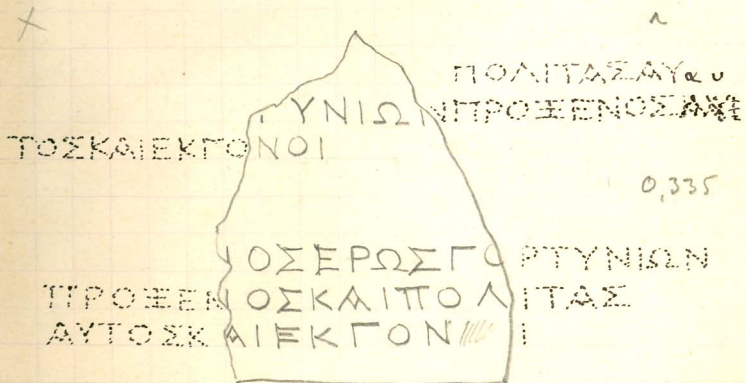 ΠΟΛΙΤΑΣΑΥαυ
ΤΥΝΙΩΝΠΡΟΞΕΝΟΣ
ΤΟΣΚΑΙΕΚΓΟΝΟΙ
0,335
ΙΟΣΕΡΩΣΓΟΡΤΥΝΙΩΝ
ΠΡΟΞΕΝΟΣΚΑΙΠΟΛΙΤΑΣ
ΑΥΤΟΣΚΑΙΕΚΓΟΝΙ